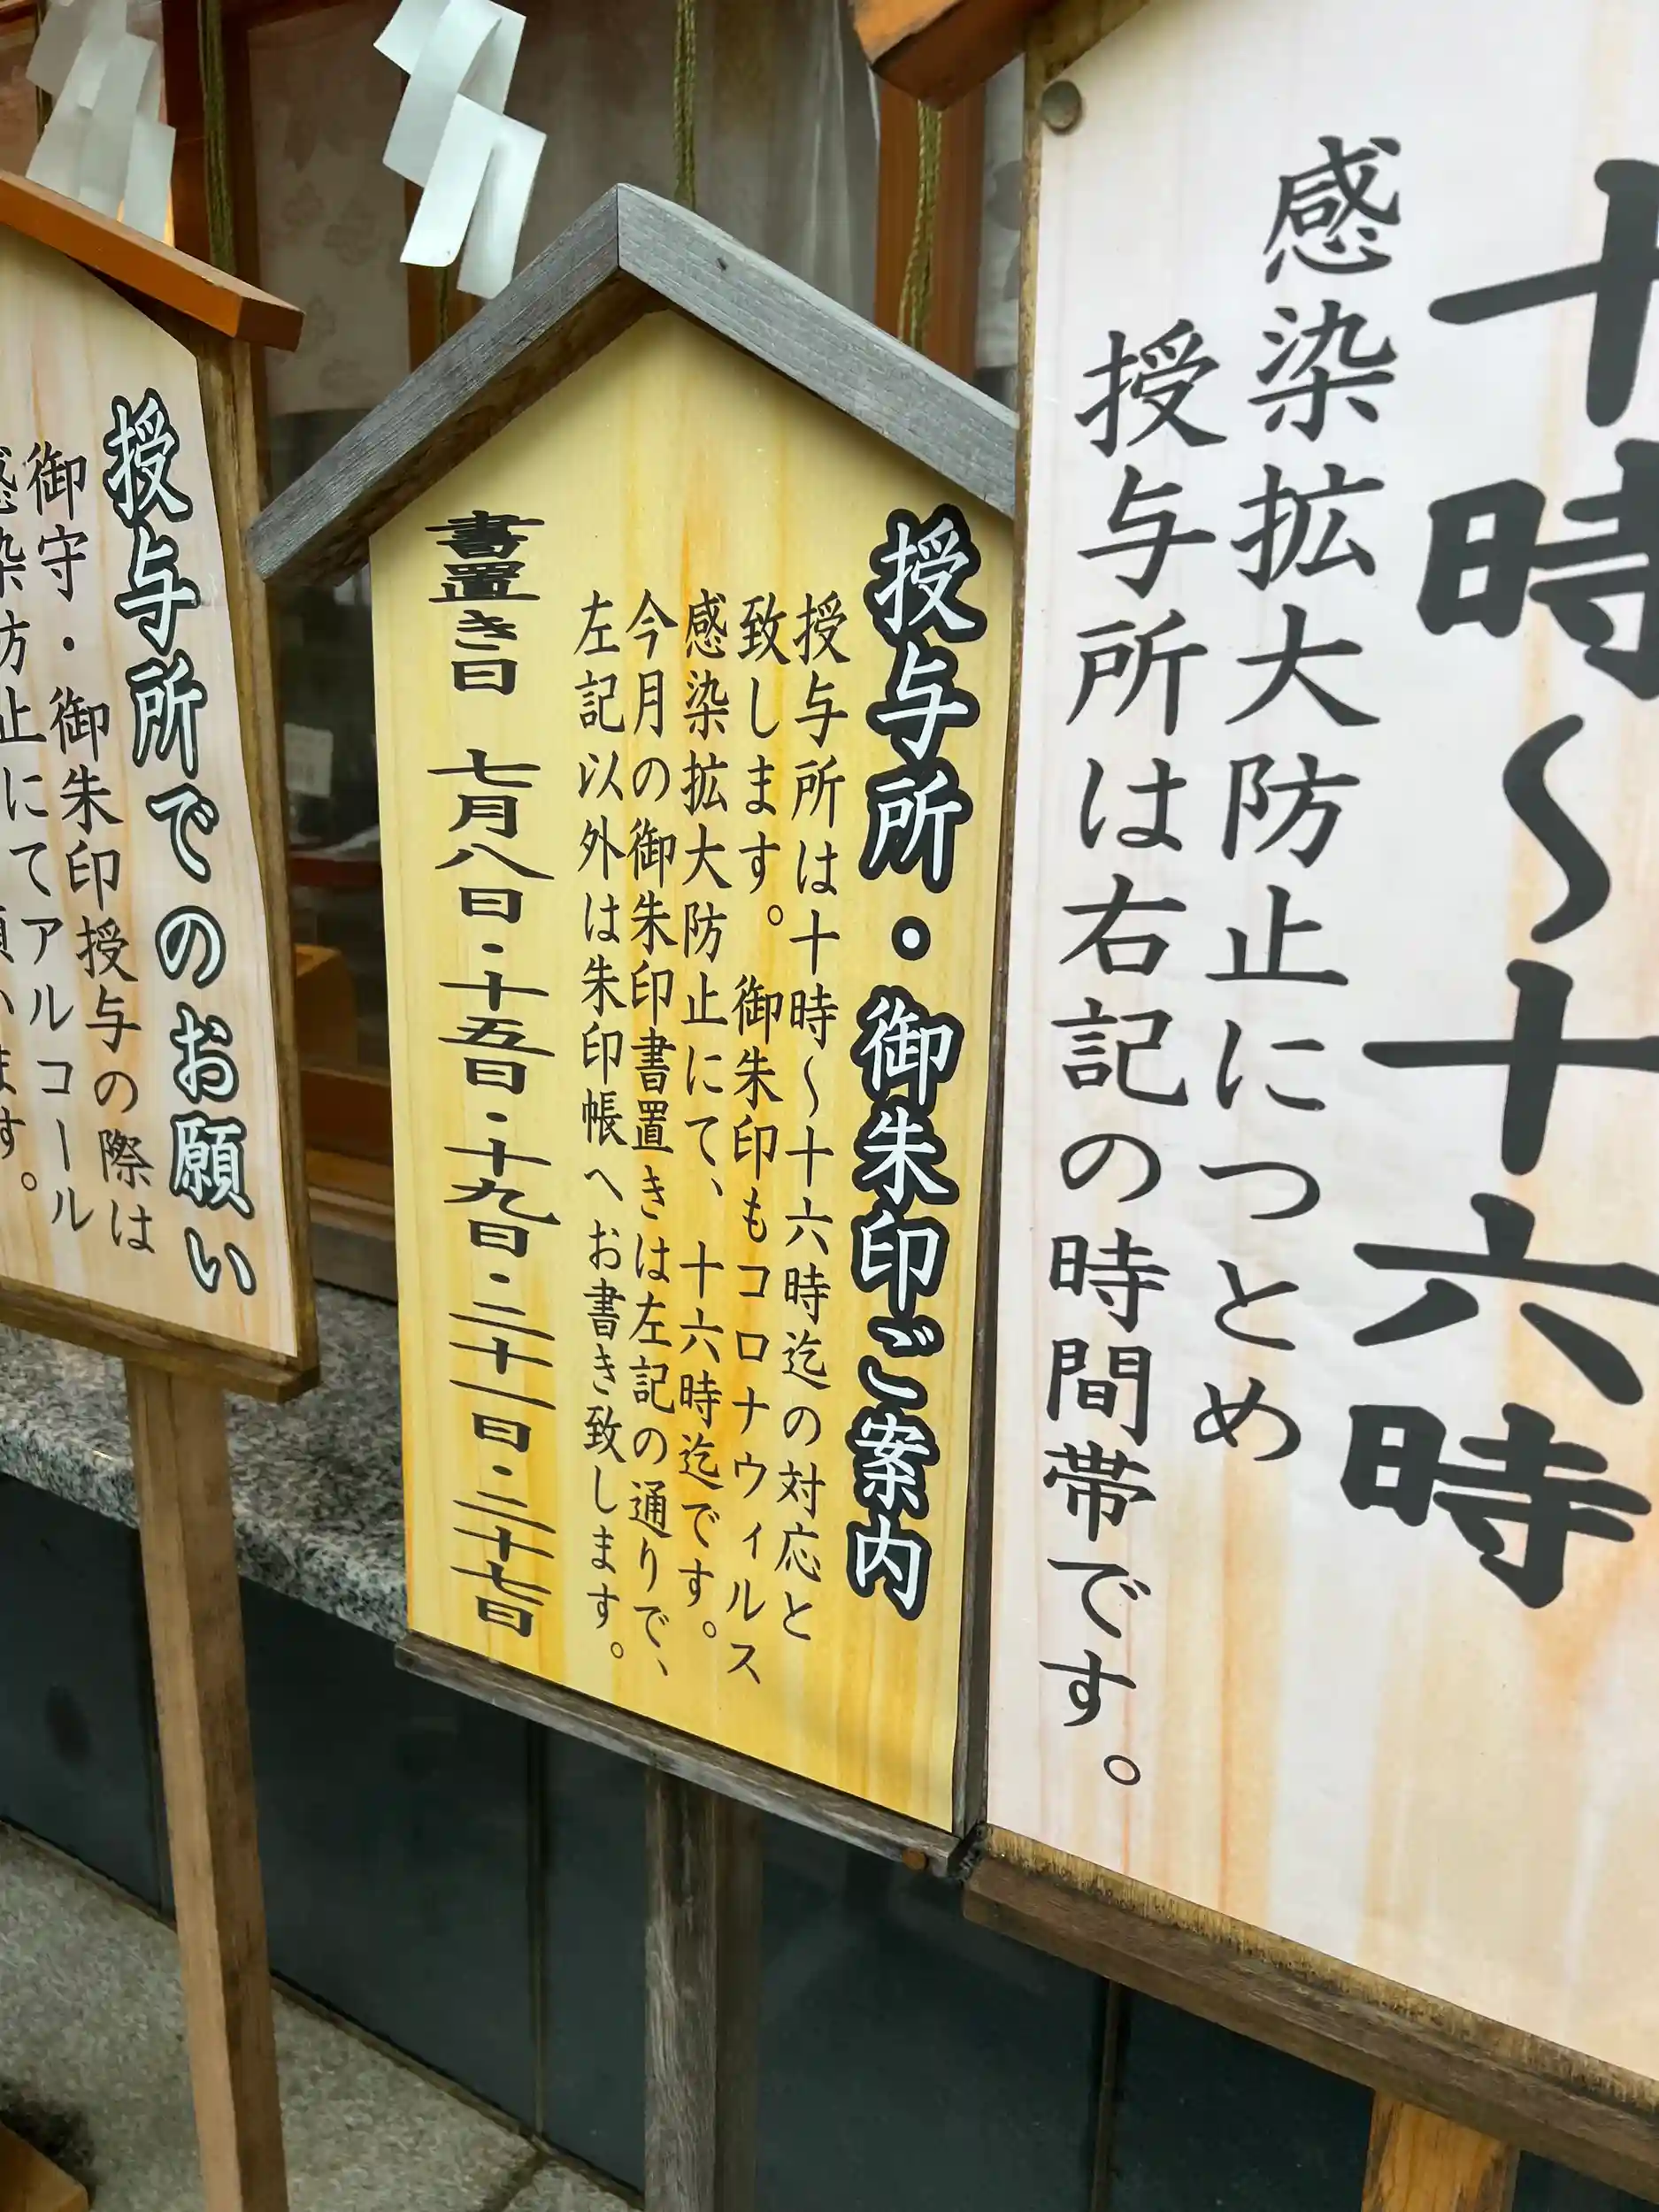 十時〜十六時
感染拡大防止につとめ
授与所は右記の時間帯です。
授与所・御朱印ご案内
授与所は十時〜十六時迄の対応と
致します。御朱印もコロナウィルス
感染拡大防止にて、十六時迄です。
今月の御朱印書置きは左記の通りで、
左記以外は朱印帳へお書き致します。
書置き日 七月八日・十五日・十九日・二十一日・二十七日
授与所でのお願い
御守・御朱印授与の際は
感染防止にてアルコール
願います。